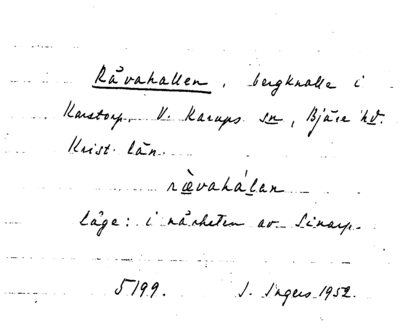 Råvahallen, bergknalle i
Karstorp, V. Karups sn, Bjäre hd.
Krist. län.
rævahálan
läge: i närheten av Sinarp.
5199. I. Ingers 1952.